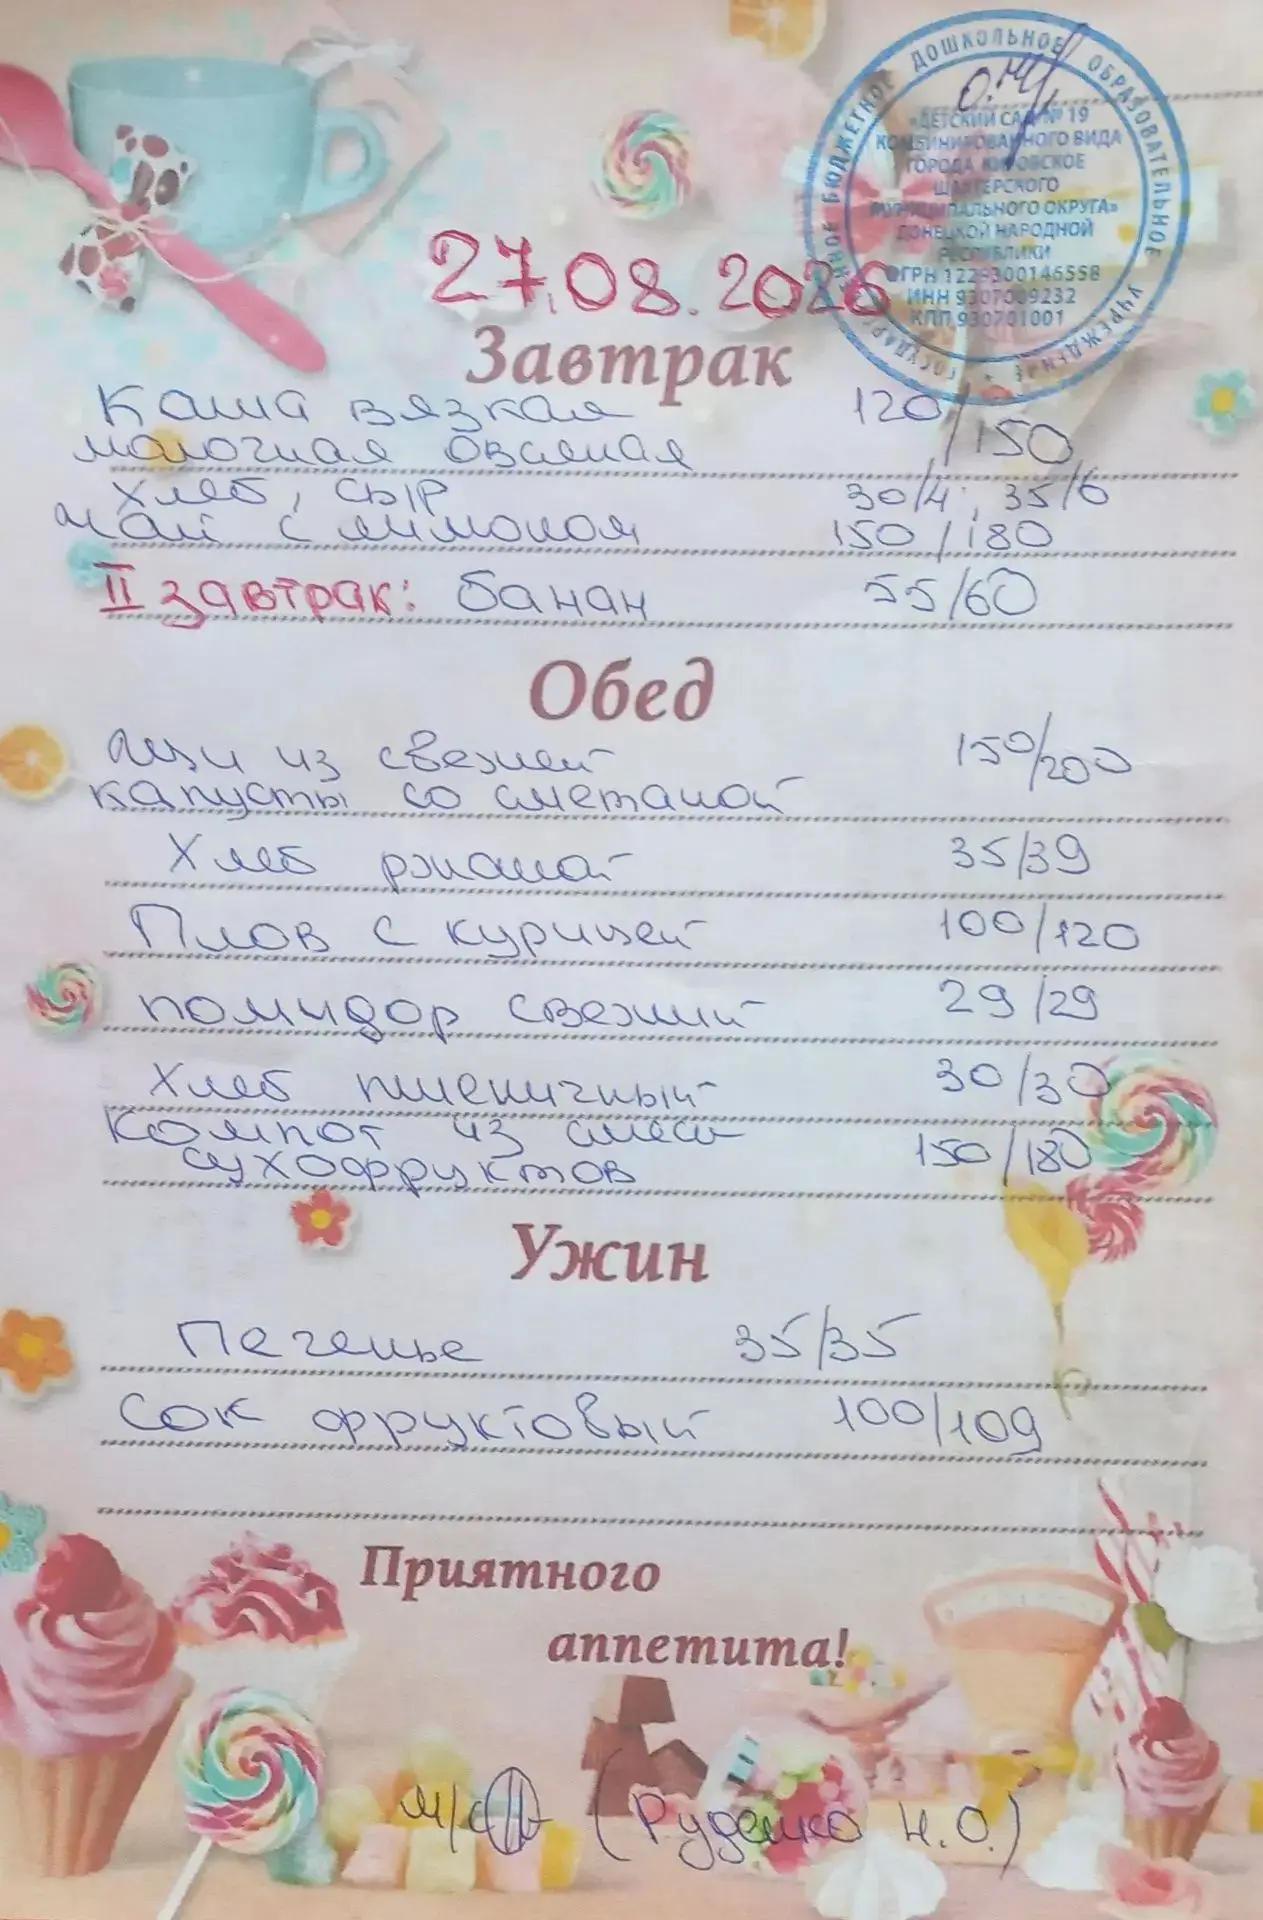 ГОСУДАРСТВЕННОЕ БЮДЖЕТНОЕ ДОШКОЛЬНОЕ ОБРАЗОВАТЕЛЬНОЕ УЧРЕЖДЕНИЕ
«ДЕТСКИЙ САД № 19
КОМБИНИРОВАННОГО ВИДА
ГОРОДА КИРОВСКОЕ
ШАХТЕРСКОГО
МУНИЦИПАЛЬНОГО ОКРУГА»
ДОНЕЦКОЙ НАРОДНОЙ
РЕСПУБЛИКИ
ОГРН 1229300146558
ИНН 9307009232
КПП 930701001
27.08.2026
Завтрак
Каша вязкая 120/150
молочная овсяная
Хлеб, сыр 30/4; 35/6
Чай с лимоном 150/180
II завтрак: банан 55/60
Обед
Щи из свежей 150/200
капусты со сметаной
Хлеб ржаной 35/39
Плов с курицей 100/120
помидор свежий 29/29
Хлеб пшеничный 30/30
Компот из смеси
сухофруктов 150/180
Ужин
Печенье 35/35
Сок фруктовый 100/109
Приятного
аппетита!
м/с (Руденко Н.О.)